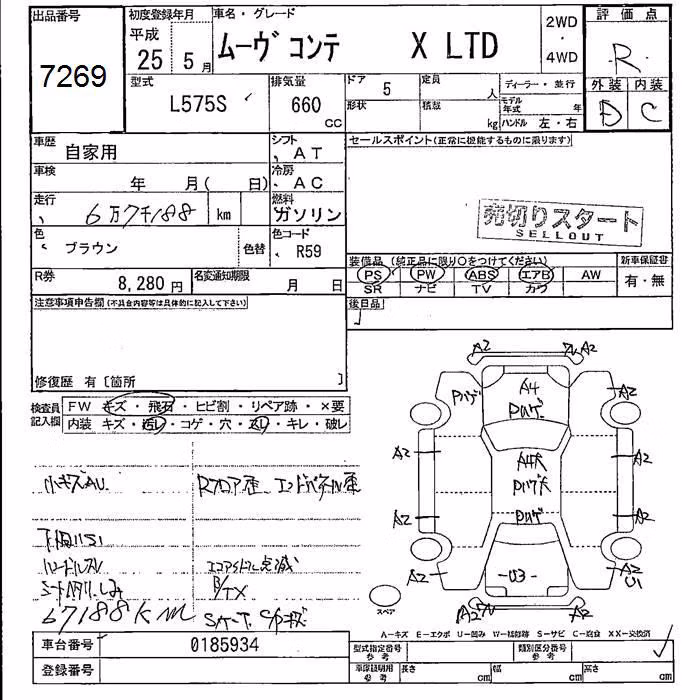 出品番号
7269
初度登録年月
平成
25 5月
車名・グレード
ムーヴ コンテ X LTD
2WD
・
4WD
評価点
R
外装 内装
D C
型式
L575S
排気量
660 CC
ドア 5
定員 人
形状
積載 kg
ディーラー・並行
モデル年式 年
ハンドル 左・右
車歴
自家用
シフト
AT
車検
年 月( 日)
冷房
AC
走行
6万7千188 km
燃料
ガソリン
色
ブラウン
色替
色コード
R59
R券
8,280円
名変通知期限
月 日
セールスポイント(正常に機能するものに限ります)
売切りスタート
SELLOUT
装備品 (純正品に限り○をつけてください)
PS PW ABS エアB AW
SR ナビ TV カワ
新車保証書
有・無
後日品
注意事項申告欄(不具合内容等は具体的に記入して下さい)
修復歴 有〔箇所 〕
検査員記入欄
FW キズ・飛石・ヒビ割・リペア跡・×要
内装 キズ・汚レ・コゲ・穴・スレ・キレ・破レ
小キズAU
Rフロア歪 エンドパネル歪
下廻りサビ
ハンドルスレ
エコアイドル点滅
シート内張しみ
B/TX
67188km
A2 A2
A4
ハゲ
ハゲ
A2
A2
A2
A4大
ハゲ大
ハゲ
A2
A2
A2
U3
A2
U1
A2 A2
スペア
A―キズ E―エクボ U―凹み W―補修跡 S―サビ C―腐食 XX―交換済
車台番号
0185934
登録番号
型式指定番号
参考
類別区分番号
参考
車庫証明用
参考
長さ cm
幅 cm
高さ cm